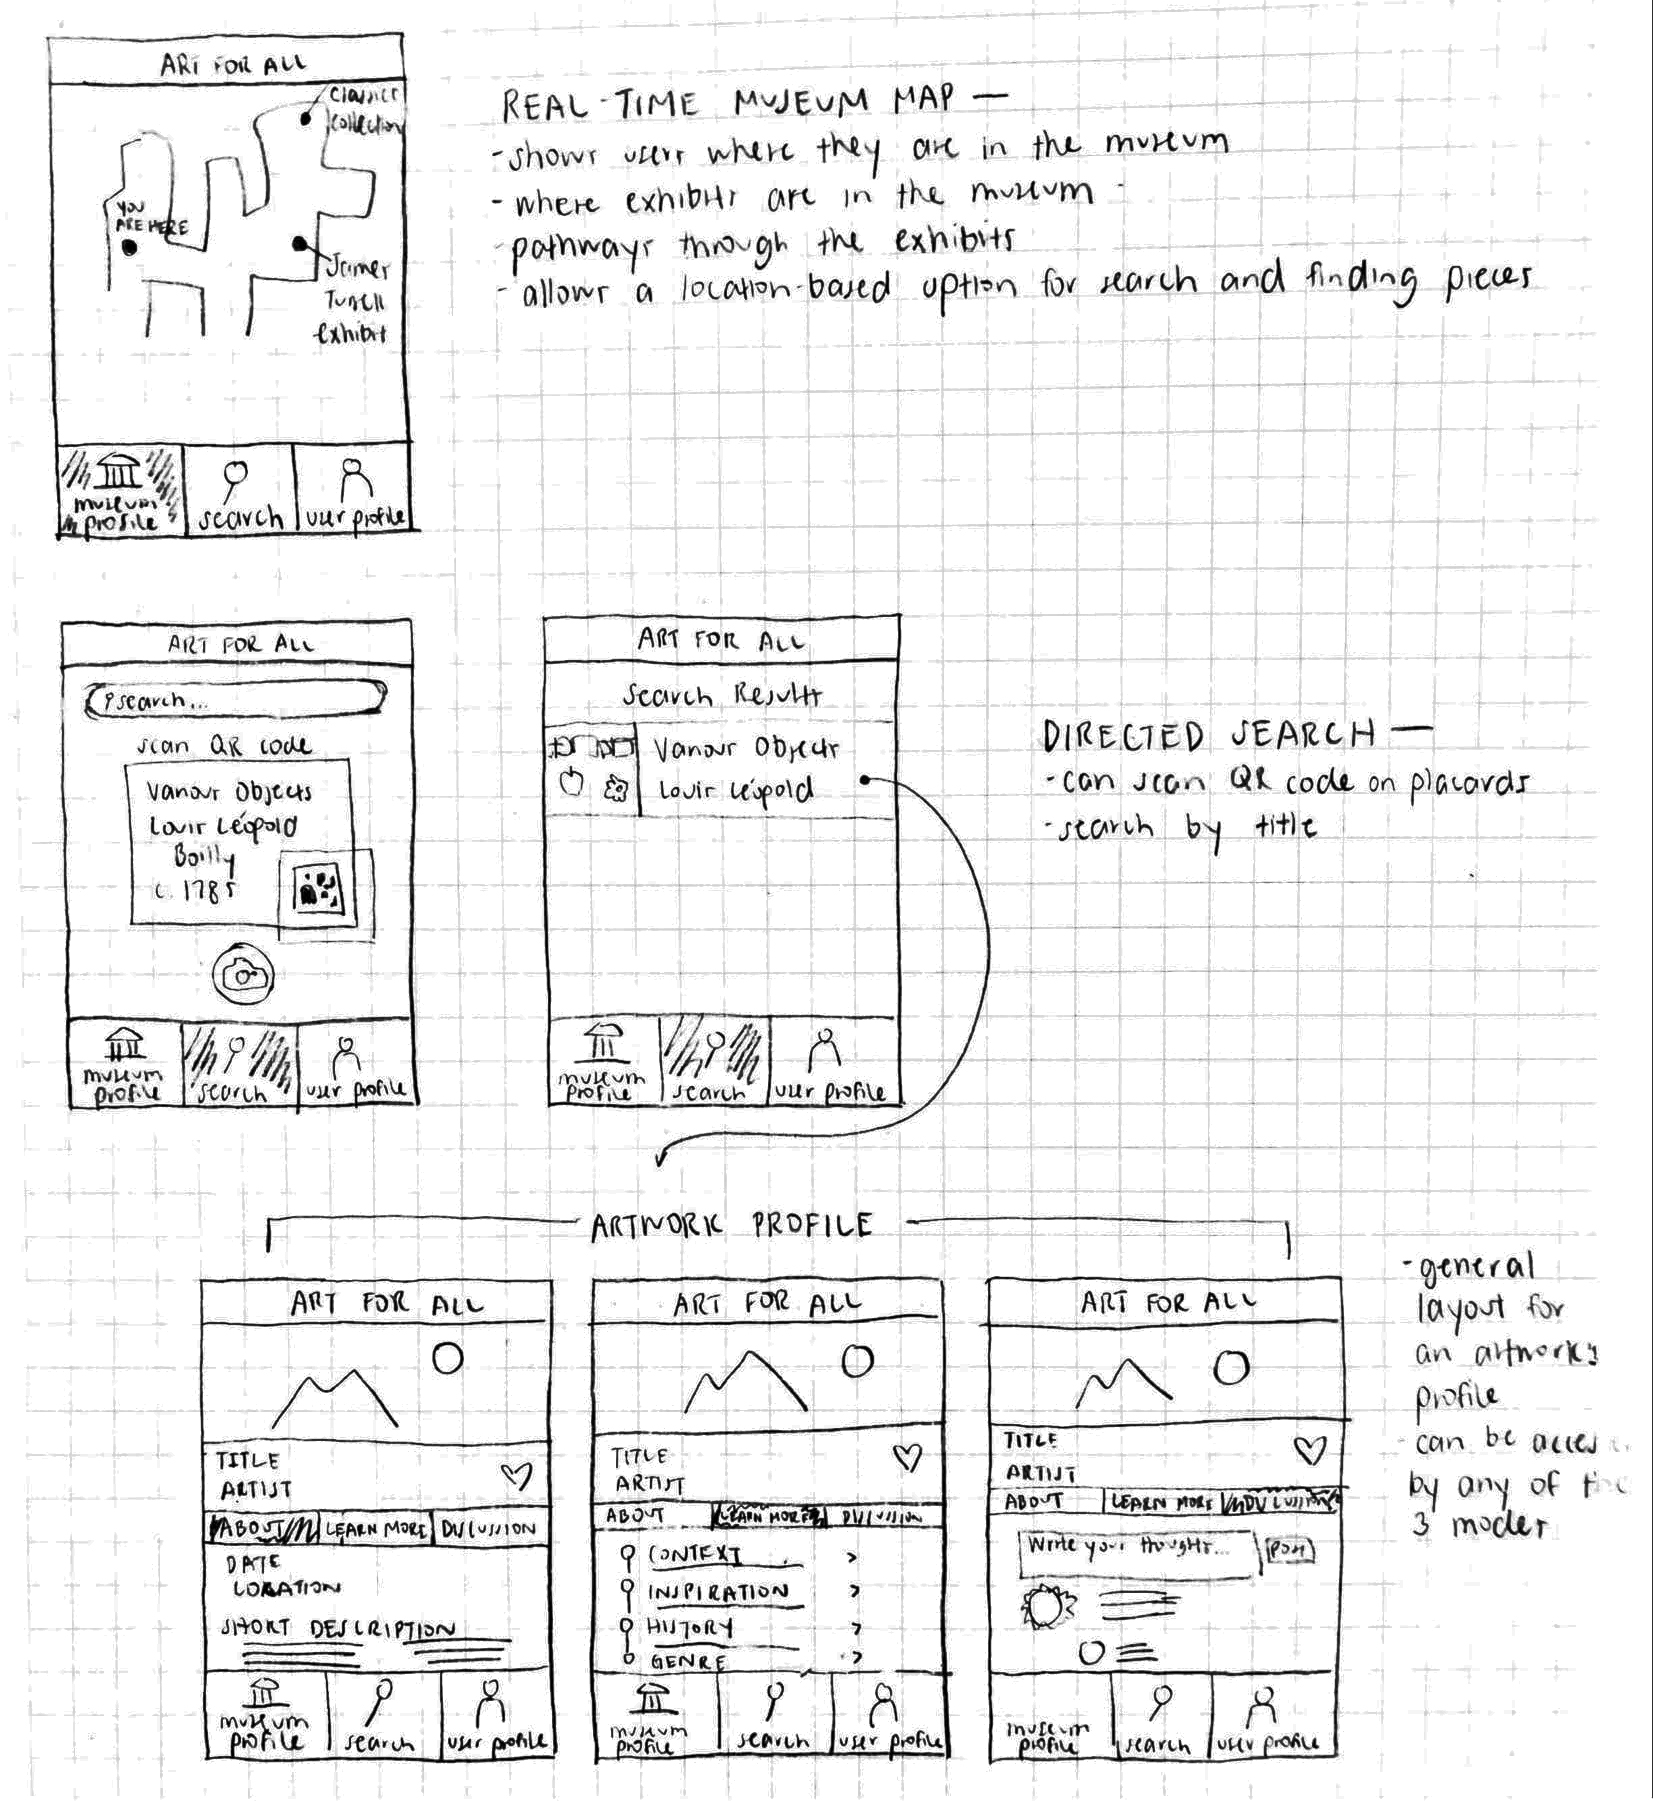 ART FOR ALL
Classics
collection
YOU
ARE HERE
James
Turell
exhibit
museum
profile
search
user profile
REAL-TIME MUSEUM MAP —
- shows users where they are in the museum
- where exhibits are in the museum
- pathways through the exhibits
- allows a location-based option for search and finding pieces
ART FOR ALL
search...
scan QR code
Various Objects
Louis Léopold
Boilly
c. 1785
museum
profile
search
user profile
ART FOR ALL
Search Results
Various Objects
Louis Léopold
museum
profile
search
user profile
DIRECTED SEARCH —
- can scan QR code on placards
- search by title
ARTWORK PROFILE
ART FOR ALL
TITLE
ARTIST
ABOUT LEARN MORE DISCUSSION
DATE
LOCATION
SHORT DESCRIPTION
museum
profile
search
user profile
ART FOR ALL
TITLE
ARTIST
ABOUT LEARN MORE DISCUSSION
CONTEXT >
INSPIRATION >
HISTORY >
GENRE >
museum
profile
search
user profile
ART FOR ALL
TITLE
ARTIST
ABOUT LEARN MORE DISCUSSION
Write your thoughts... post
museum
profile
search
user profile
- general
layout for
an artwork's
profile
- can be
by any of the
3 modes